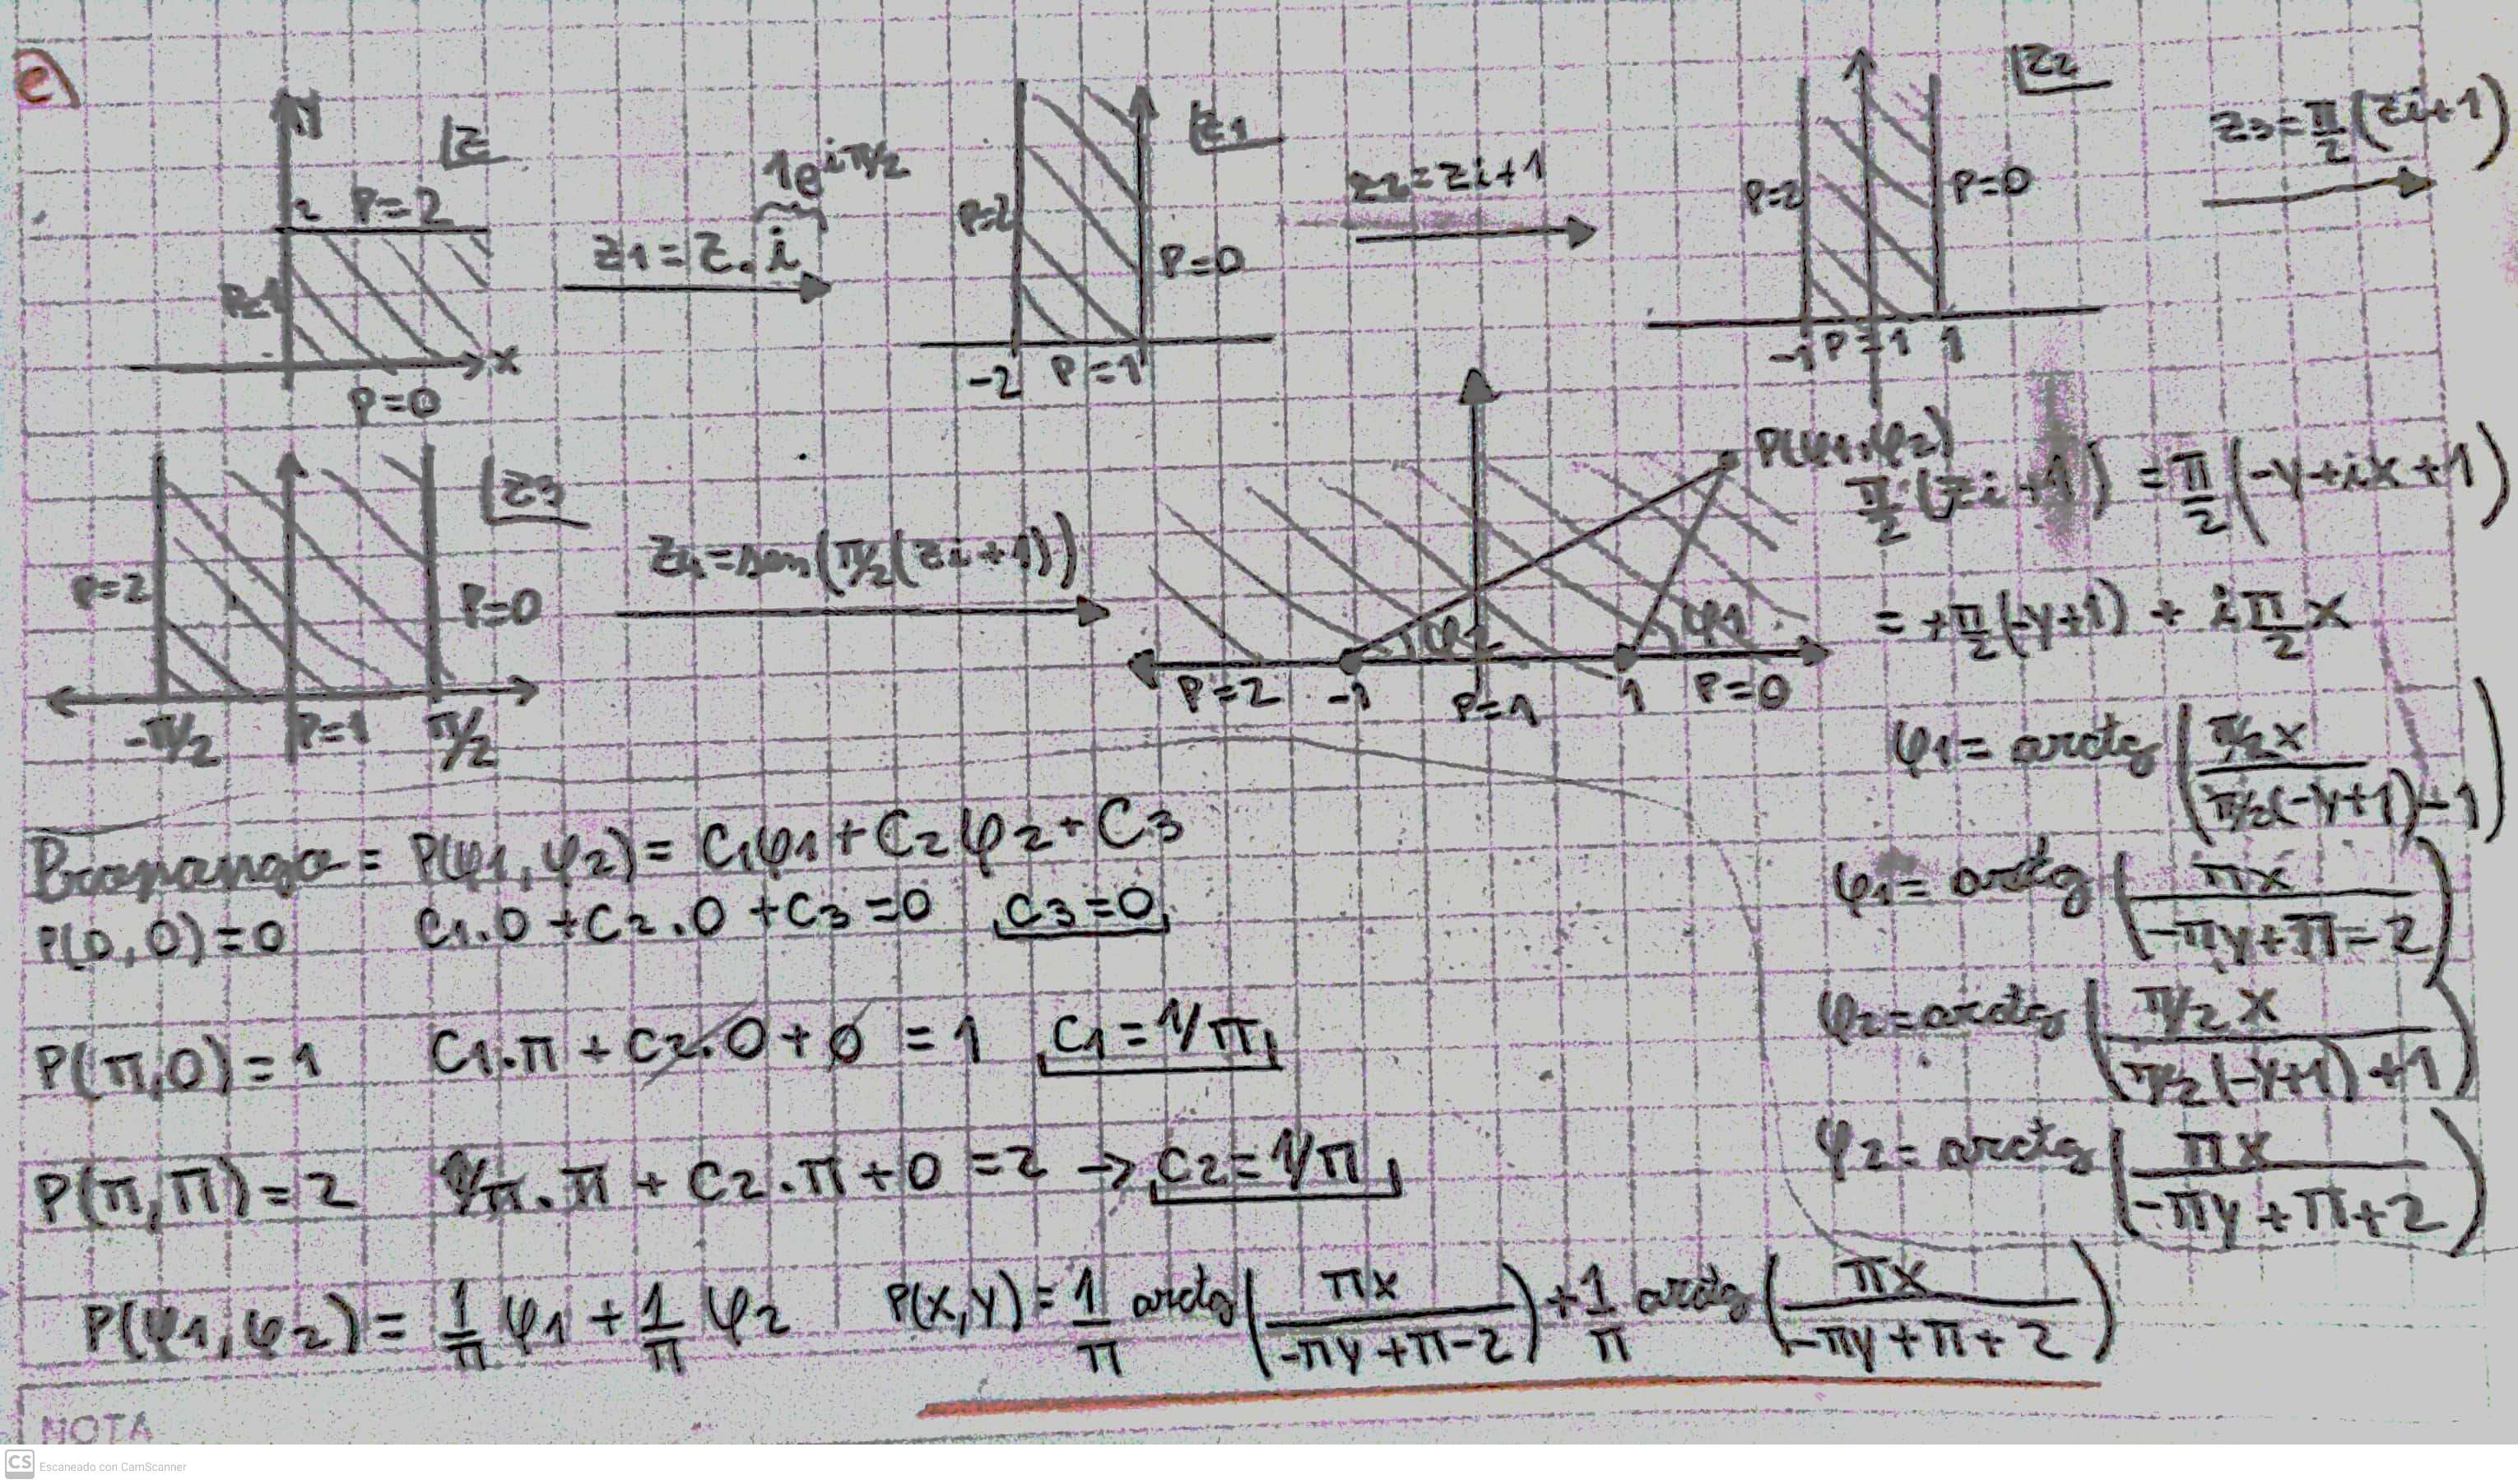 e)
y
z
2 P=2
P=1
x
P=0
1e^{iπ/2}
z1 = z . i
z1
P=2
P=0
-2 P=1
z2 = zi+1
z2
P=2
P=0
-1 P=1 1
z3 = π/2 (zi+1)
z3
P=2
P=0
-π/2 P=1 π/2
z4 = sen(π/2(zi+1))
P(φ1,φ2)
φ2 φ1
P=2 -1 P=1 1 P=0
π/2 (zi+1) = π/2 (-y+ix+1)
= +π/2(-y+1) + i π/2 x
φ1 = arctg (π/2 x / (π/2(-y+1)-1))
φ1 = arctg (πx / (-πy+π-2))
φ2 = arctg (π/2 x / (π/2(-y+1)+1))
φ2 = arctg (πx / (-πy+π+2))
Propongo = P(φ1,φ2) = C1φ1 + C2φ2 + C3
P(0,0)=0 C1.0 + C2.0 + C3 = 0 C3=0
P(π,0)=1 C1.π + C2.0 + 0 = 1 C1 = 1/π
P(π,π)=2 1/π.π + C2.π + 0 = 2 → C2 = 1/π
P(φ1,φ2) = 1/π φ1 + 1/π φ2 P(x,y) = 1/π arctg (πx / (-πy+π-2)) + 1/π arctg (πx / (-πy+π+2))
NOTA
CS Escaneado con CamScanner